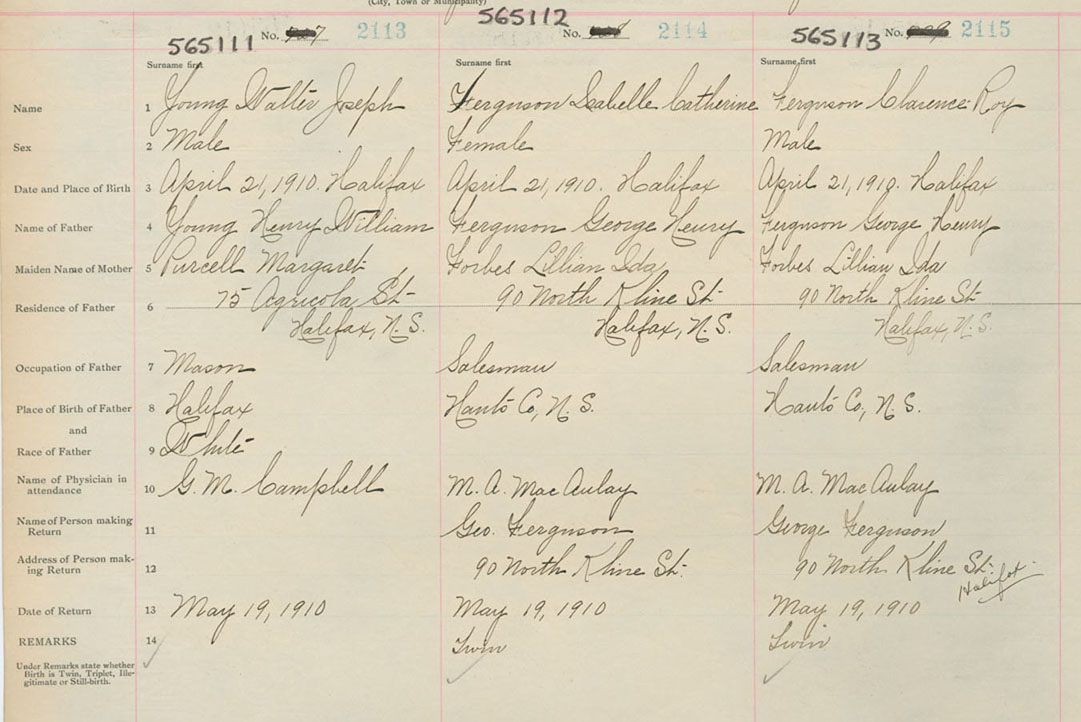 (City, Town or Municipality)
565111 No. 2113 565112 No. 2114 565113 No. 2115
Surname first Surname first Surname first
Name 1 Young Walter Joseph Ferguson Isabelle Catherine Ferguson Clarence Roy
Sex 2 Male Female Male
Date and Place of Birth 3 April 21, 1910. Halifax April 21, 1910. Halifax April 21, 1910. Halifax
Name of Father 4 Young Henry William Ferguson George Henry Ferguson George Henry
Maiden Name of Mother 5 Purcell Margaret Forbes Lillian Ida Forbes Lillian Ida
Residence of Father 6 75 Agricola St. 90 North Kline St. 90 North Kline St.
Halifax, N.S. Halifax, N.S. Halifax, N.S.
Occupation of Father 7 Mason Salesman Salesman
Place of Birth of Father 8 Halifax Hants Co, N.S. Hants Co, N.S.
and
Race of Father 9 White
Name of Physician in
attendance 10 G. M. Campbell M. A. MacAulay M. A. MacAulay
Name of Person making
Return 11 Geo. Ferguson George Ferguson
Address of Person mak-
ing Return 12 90 North Kline St. 90 North Kline St. Halifax
Date of Return 13 May 19, 1910 May 19, 1910 May 19, 1910
REMARKS 14 Twin Twin
Under Remarks state whether
Birth is Twin, Triplet, Ille-
gitimate or Still-birth.